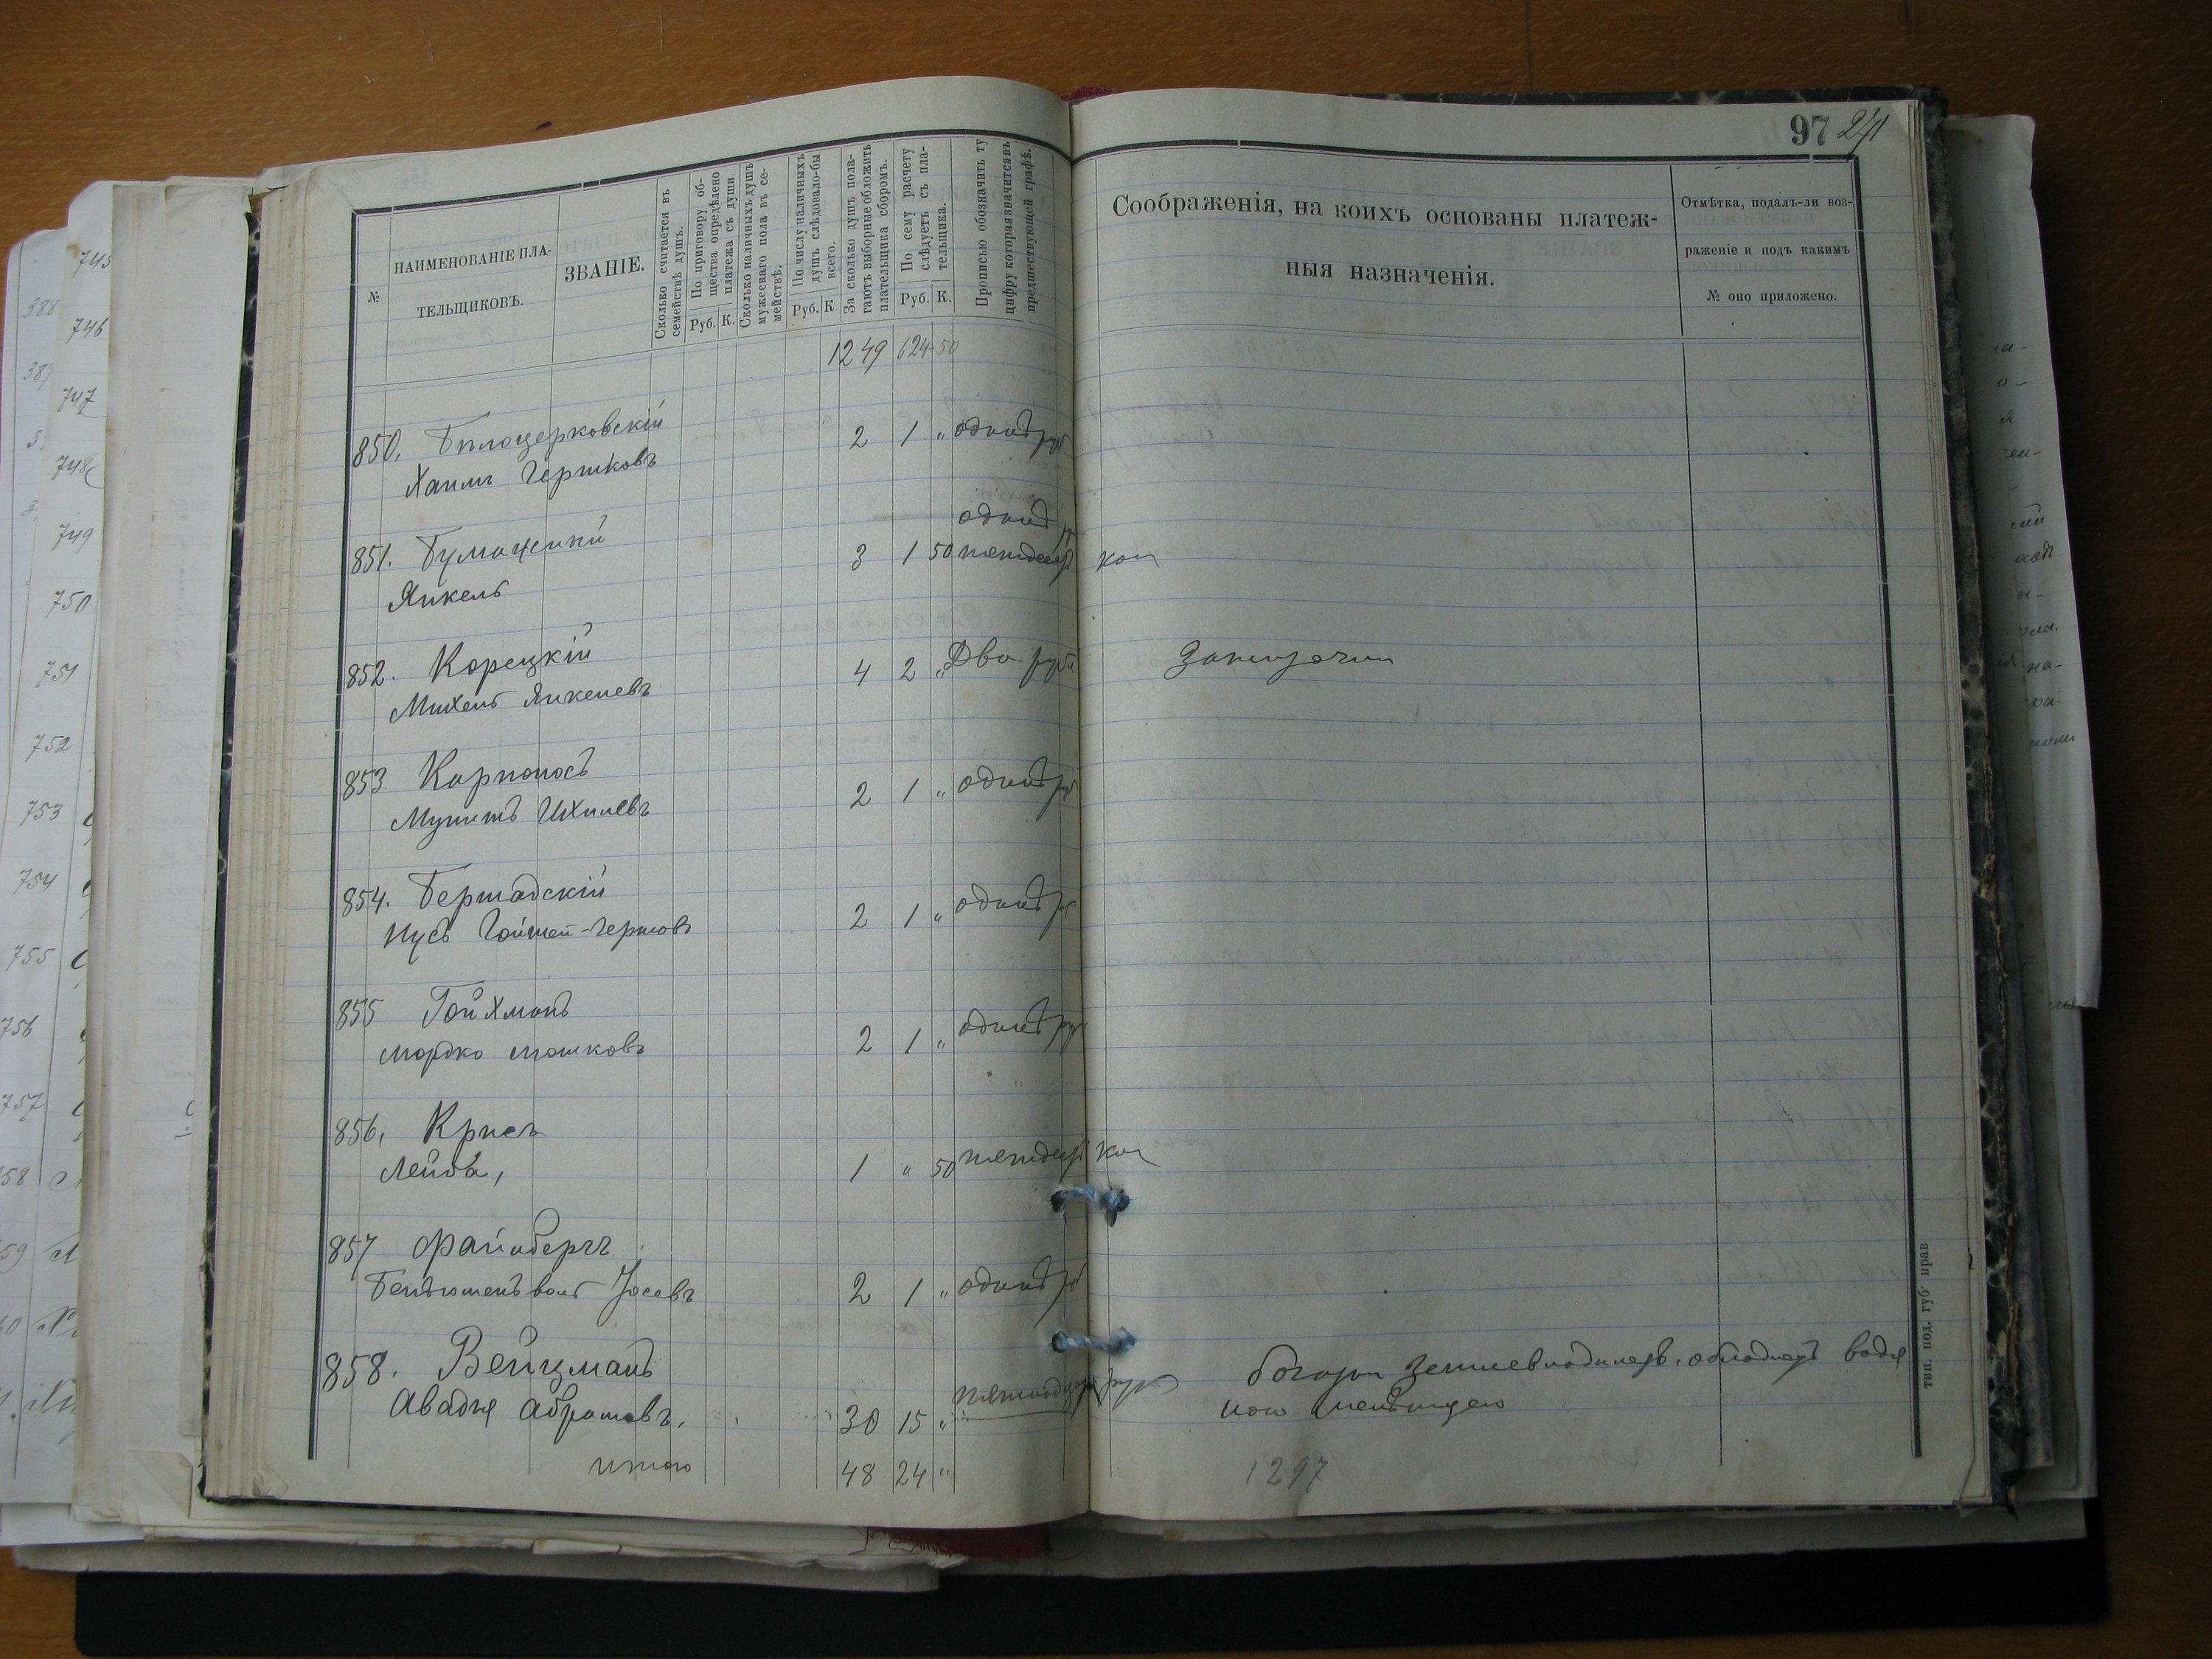 97 271
№
НАИМЕНОВАНІЕ ПЛА-
ТЕЛЬЩИКОВЪ.
ЗВАНІЕ.
Сколько считается въ
семействѣ душъ.
По приговору об-
щества опредѣлено
платежа съ души
Руб. К.
Сколько наличныхъ душъ
мужескаго пола въ се-
мействѣ.
По числу наличныхъ
душъ слѣдовало-бы
всего.
Руб. К
За сколько душъ пола-
гаютъ выборные обложить
плательщика сборомъ.
По сему расчету
слѣдуетъ съ пла-
тельщика.
Руб. К.
Прописью обозначить ту
цифру которая значится въ
предшествующей графѣ.
Соображенія, на коихъ основаны платеж-
ныя назначенія.
Отмѣтка, подалъ-ли воз-
раженіе и подъ какимъ
№ оно приложено.
1249 624-50
850. Бѣлоцерковскій
Хаимъ Гершковъ 2 1 „ одинъ руб
851. одинъ р
Янкель 3 1 50 пятдесят коп
852. Корецкій
Михель Янкелевъ 4 2 „ Два рубл
853 Карпоносъ
Ихилевъ 2 1 „ одинъ руб
854. Бершадскій
Гершовъ 2 1 „ одинъ руб
855 Гойхманъ
Мордко Мошковъ 2 1 „ одинъ руб
856, Крисъ
Лейба, 1 „ 50 пятдесят коп
857 Файнбергъ
Іосевъ 2 1 „ одинъ руб
858. Вейцманъ
Авадія Абрамовъ. 30 15 „ пятнадцать руб
итого 48 24 „
1297
тип. под. губ. прав
745
746
747
748
749
750
751
752
753
754
755
756
757